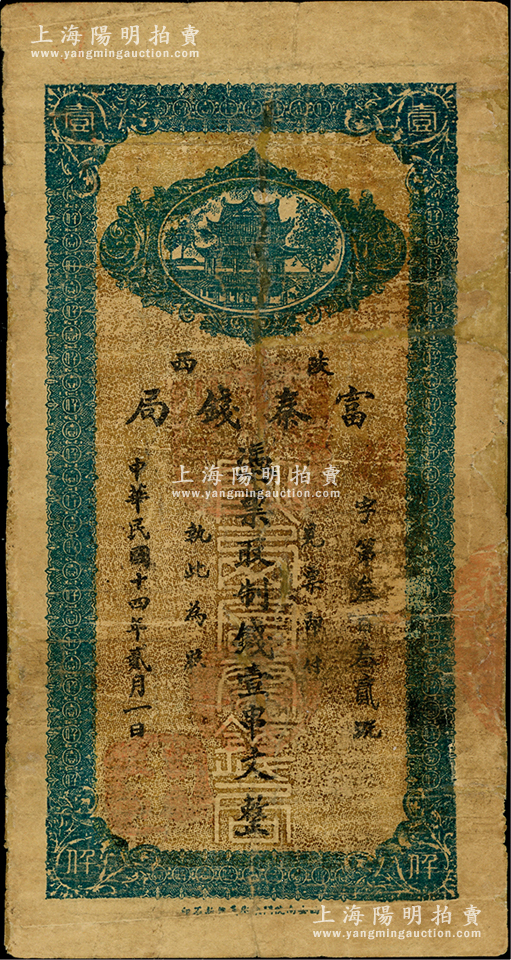 上海陽明拍賣
www.yangmingauction.com
壹
壹
陝西
富秦錢局
字第叁百若貳號
認票兌付
憑票取制錢壹串文整
執此為照
中華民國十四年貳月一日
上海陽明拍賣
www.yangmingauction.com
仟
仟
上海陽明拍賣
www.yangmingauction.com